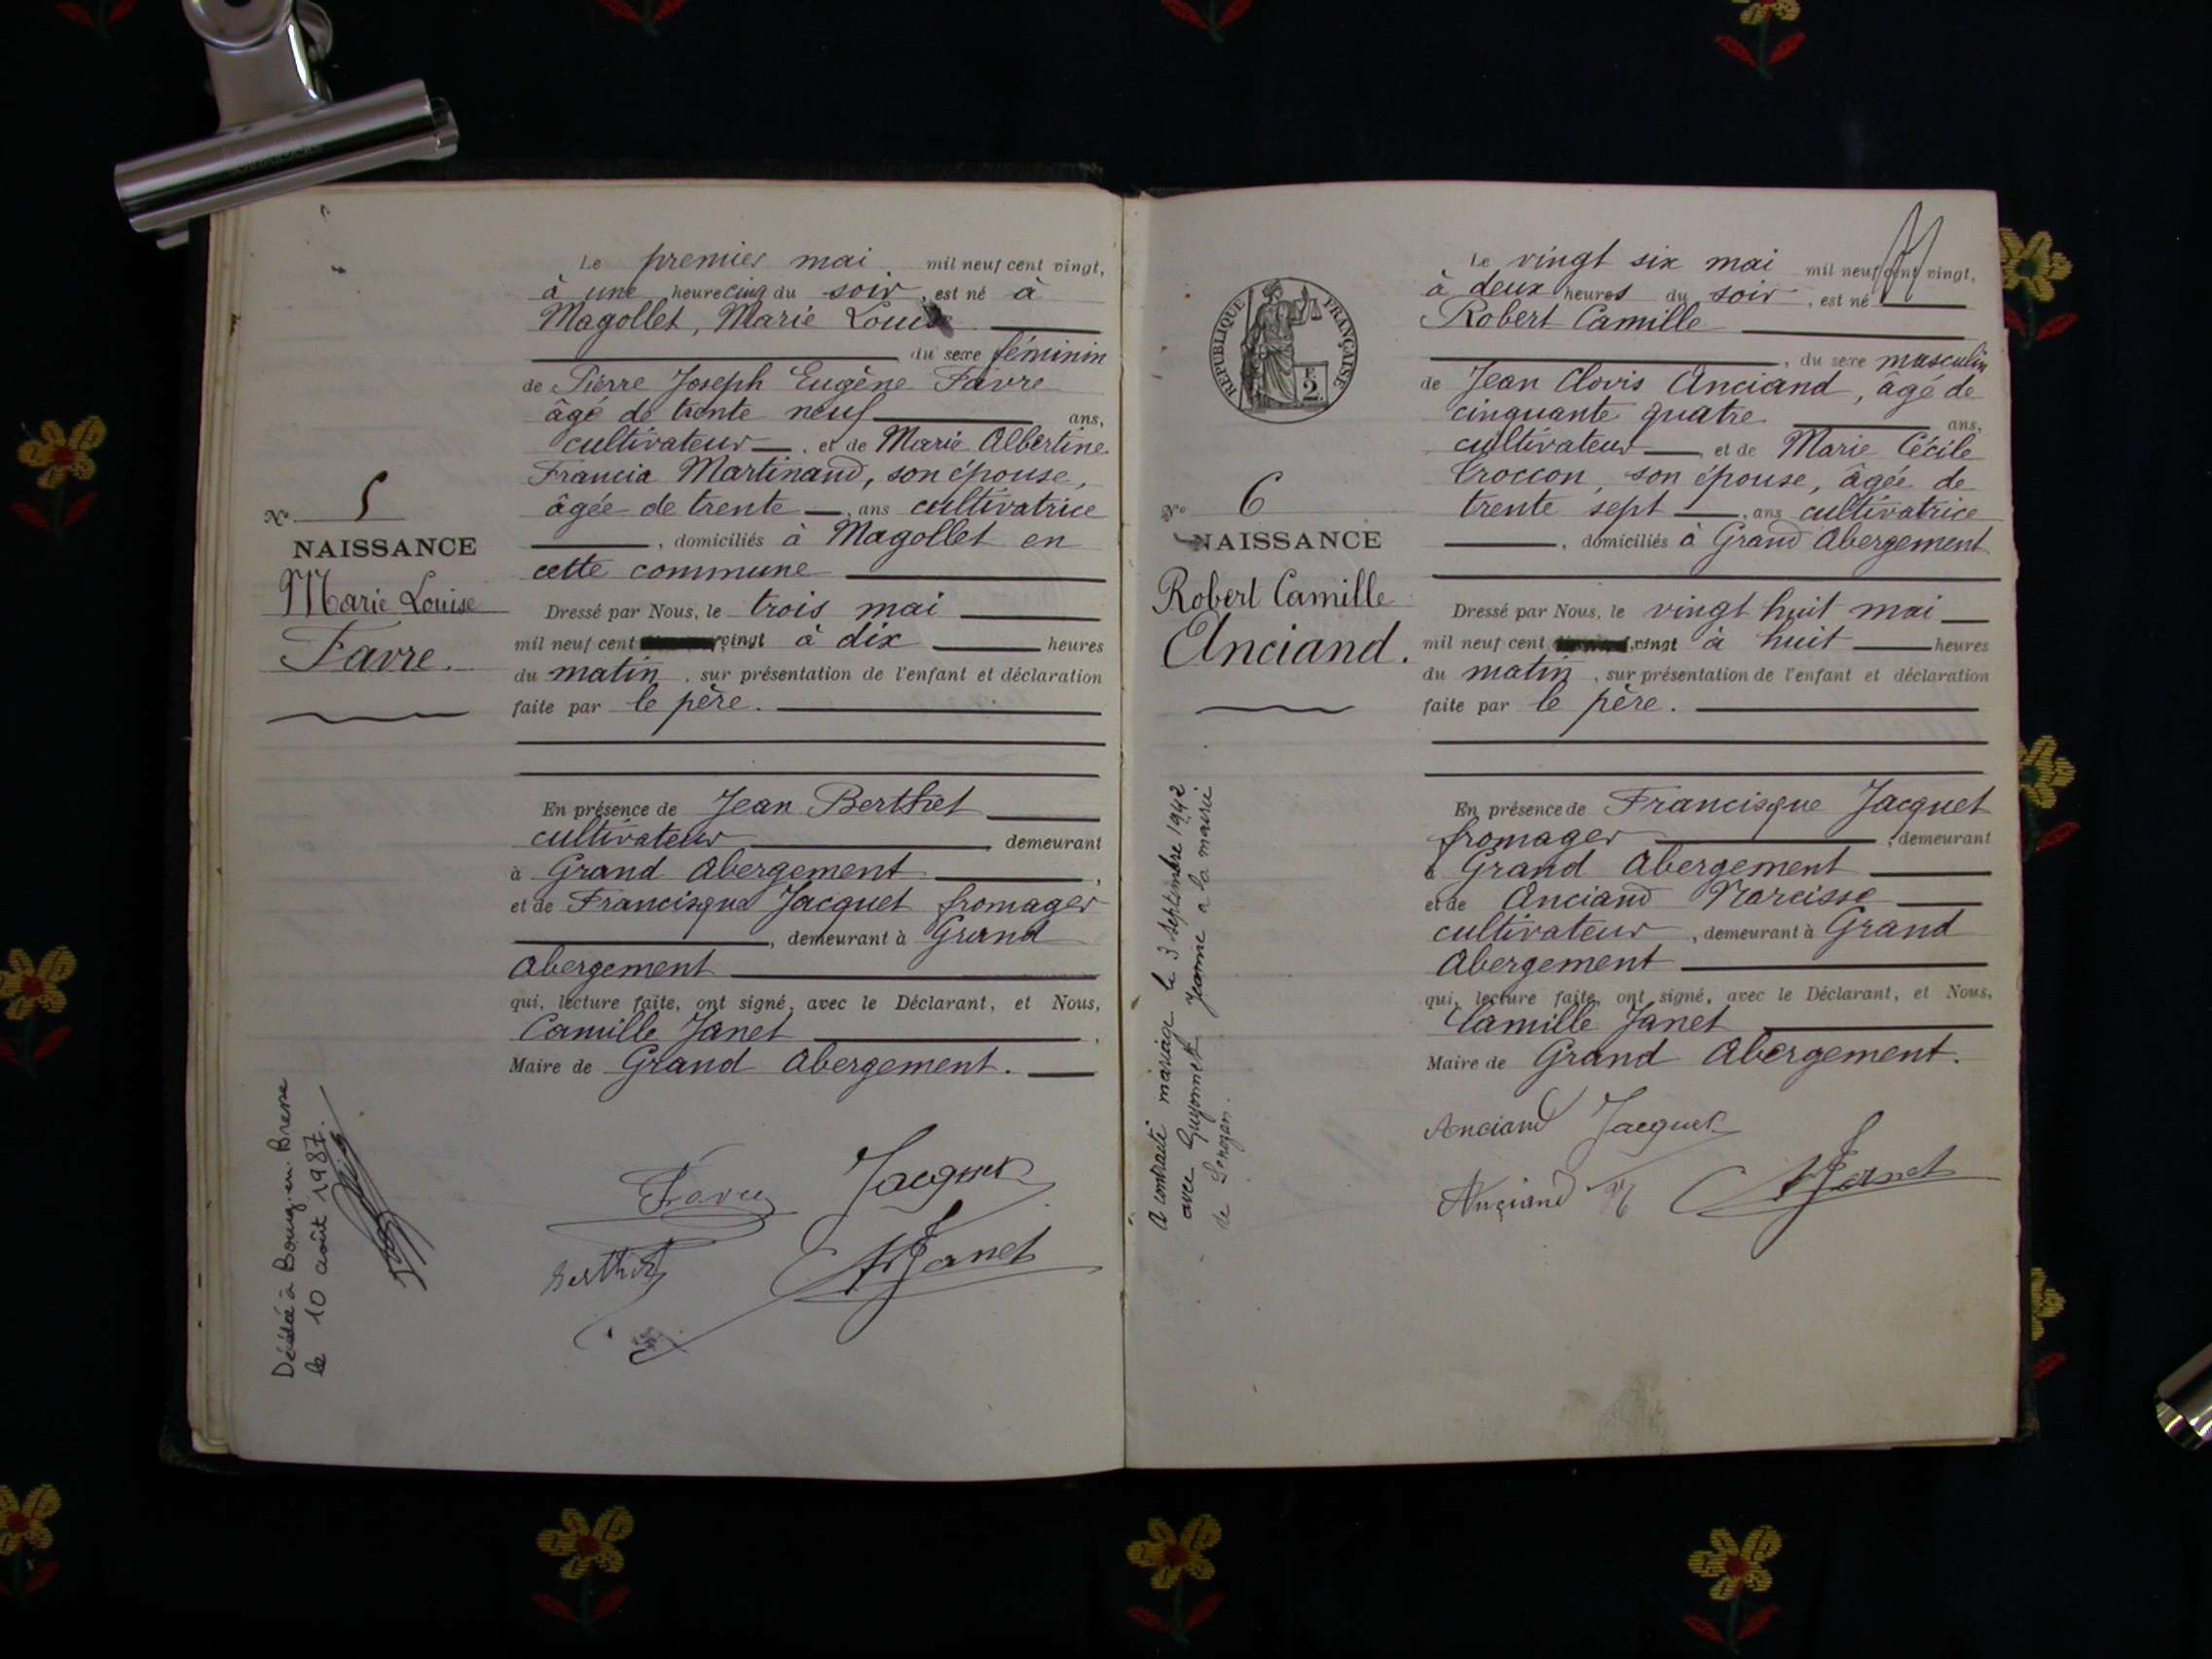 N° 5
NAISSANCE
Marie Louise
Favre.
Décédée à Bourg-en-Bresse
le 10 août 1987.
Le premier mai mil neuf cent vingt,
à une heure cinq du soir, est né à
Magollet, Marie Louise
du sexe féminin
de Pierre Joseph Eugène Favre
âgé de trente neuf ans,
cultivateur, et de Marie Albertine
Francia Martinand, son épouse,
âgée de trente, ans cultivatrice
, domiciliés à Magollet en
cette commune
Dressé par Nous, le trois mai
mil neuf cent vingt à dix heures
du matin, sur présentation de l'enfant et déclaration
faite par le père.
En présence de Jean Berthet
cultivateur demeurant
à Grand Abergement,
et de Francisque Jacquet fromager
, demeurant à Grand
Abergement
qui, lecture faite, ont signé, avec le Déclarant, et Nous,
Camille Janet,
Maire de Grand Abergement.
Favre Jacquet
Berthet Janet
RÉPUBLIQUE FRANÇAISE
2
N° 6
NAISSANCE
Robert Camille
Anciand.
A contracté mariage le 3 septembre 1942
avec Guyonnet Jeanne à la mairie
de Senozan.
Le vingt six mai mil neuf cent vingt,
à deux heures du soir, est né
Robert Camille
, du sexe masculin
de Jean Clovis Anciand, âgé de
cinquante quatre ans,
cultivateur, et de Marie Cécile
Troccon, son épouse, âgée de
trente sept, ans cultivatrice
, domiciliés à Grand Abergement
Dressé par Nous, le vingt huit mai
mil neuf cent vingt à huit heures
du matin, sur présentation de l'enfant et déclaration
faite par le père.
En présence de Francisque Jacquet
fromager, demeurant
à Grand Abergement
et de Anciand Narcisse
cultivateur, demeurant à Grand
Abergement
qui, lecture faite, ont signé, avec le Déclarant, et Nous,
Camille Janet
Maire de Grand Abergement.
Anciand Jacquet
Anciand N Janet